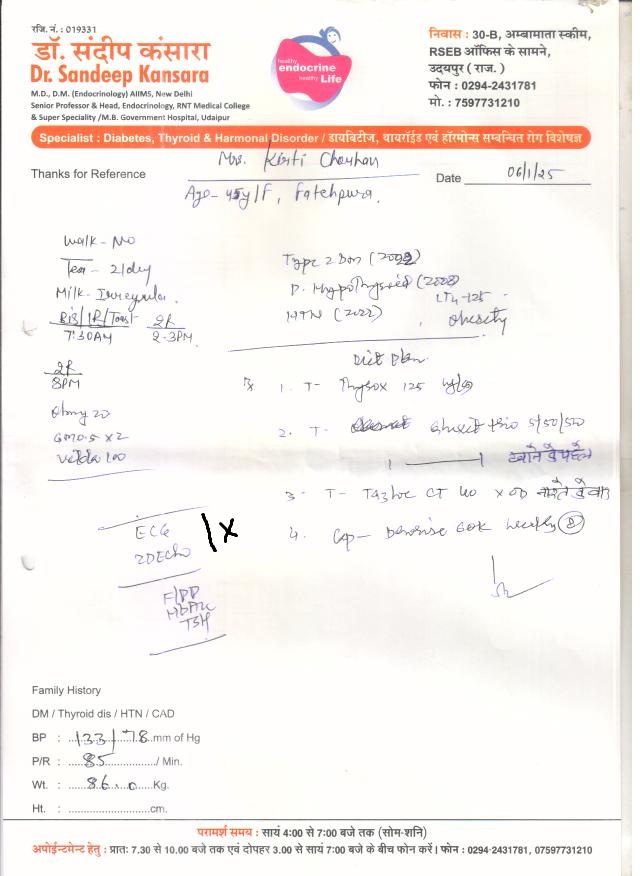 रजि. नं. : 019331
डॉ. संदीप कंसारा
Dr. Sandeep Kansara
M.D., D.M. (Endocrinology) AIIMS, New Delhi
Senior Professor & Head, Endocrinology, RNT Medical College
& Super Speciality /M.B. Government Hospital, Udaipur
healthy
endocrine
healthy Life
निवास : 30-B, अम्बामाता स्कीम,
RSEB ऑफिस के सामने,
उदयपुर ( राज. )
फोन : 0294-2431781
मो. : 7597731210
Specialist : Diabetes, Thyroid & Harmonal Disorder / डायबिटीज, थायरॉईड एवं हॉरमोन्स सम्बन्धित रोग विशेषज्ञ
Thanks for Reference
Mrs. Kirti Chouhan
Date 06/1/25
Age- 45y/F, Fatehpura.
Walk - No
Tea - 2/day
Milk-
7:30AM
2-3PM
8PM
GM0.5 x2
Velda 100
ECG
2DEcho
F/PP
HbA1c
TSH
Type 2 Dm
(2008)
LT4-125
HTN (2022)
Obesity
Diet Plan
1. T- Thyrox 125
2. T- trio 5/50/500
3- T- Tazloc CT 40 x OD
4. Cap- 60K weekly
Family History
DM / Thyroid dis / HTN / CAD
BP : 133/78 mm of Hg
P/R : 85 / Min.
Wt. : 86.0 Kg.
Ht. : cm.
परामर्श समय : सायं 4:00 से 7:00 बजे तक (सोम-शनि)
अपोईन्टमेन्ट हेतु : प्रातः 7.30 से 10.00 बजे तक एवं दोपहर 3.00 से सायं 7:00 बजे के बीच फोन करें ! फोन : 0294-2431781, 07597731210